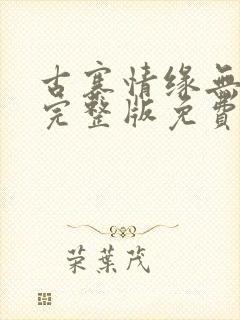 古寨情缘無
完整版免費
荣葉茂